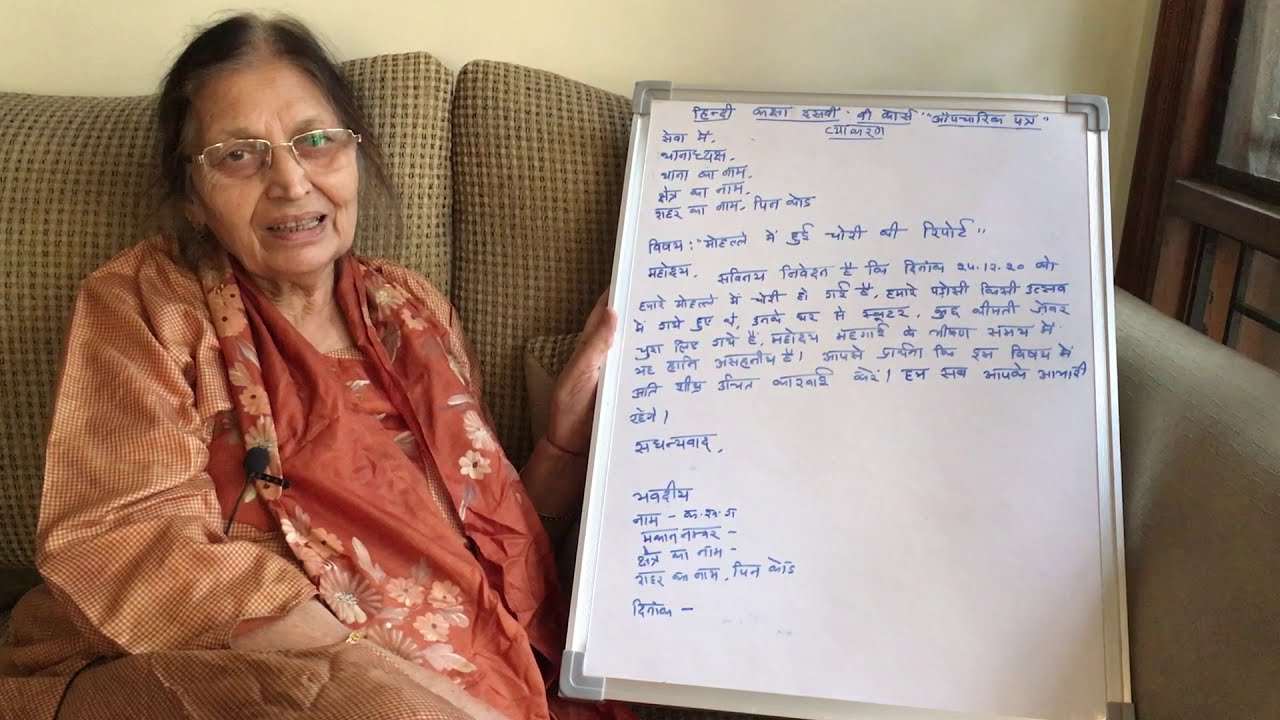 हिन्दी कक्षा दसवीं - बी कोर्स "औपचारिक पत्र"
व्याकरण
सेवा में,
थानाध्यक्ष,
थाना का नाम,
क्षेत्र का नाम,
शहर का नाम, पिन कोड
विषय: "मोहल्ले में हुई चोरी की रिपोर्ट"
महोदय, सविनय निवेदन है कि दिनांक २५.१२.२० को
हमारे मोहल्ले में चोरी हो गई है, हमारे पड़ोसी किसी उत्सव
में गये हुए थे, उनके घर से स्कूटर, कुछ कीमती जेवर
चुरा लिए गये हैं, महोदय मंहगाई के भीषण समय में
यह हानि असहनीय है। आपसे प्रार्थना कि इस विषय में
अति शीघ्र उचित कारवाई करें। हम सब आपके आभारी
रहेंगे।
सधन्यवाद,
भवदीय
नाम - क.ख.ग
मकान नम्बर -
क्षेत्र का नाम -
शहर का नाम, पिन कोड
दिनांक -